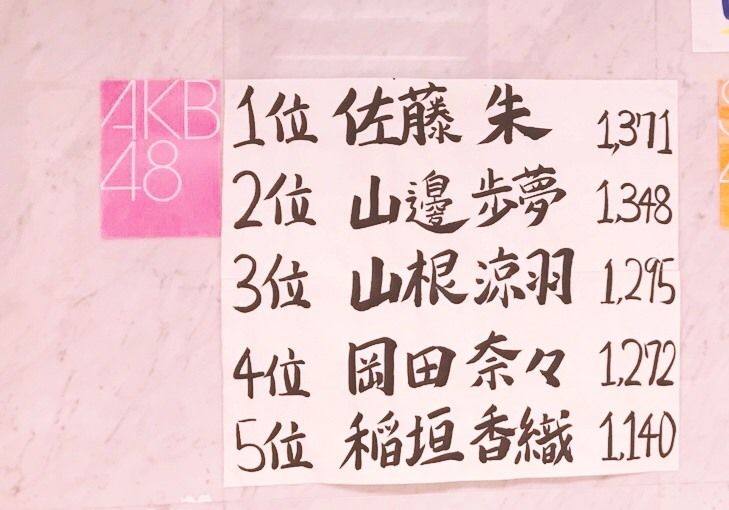 AKB
48
1位 佐藤 朱 1,371
2位 山邊 歩夢 1,348
3位 山根 涼羽 1,295
4位 岡田 奈々 1,272
5位 稲垣 香織 1,140